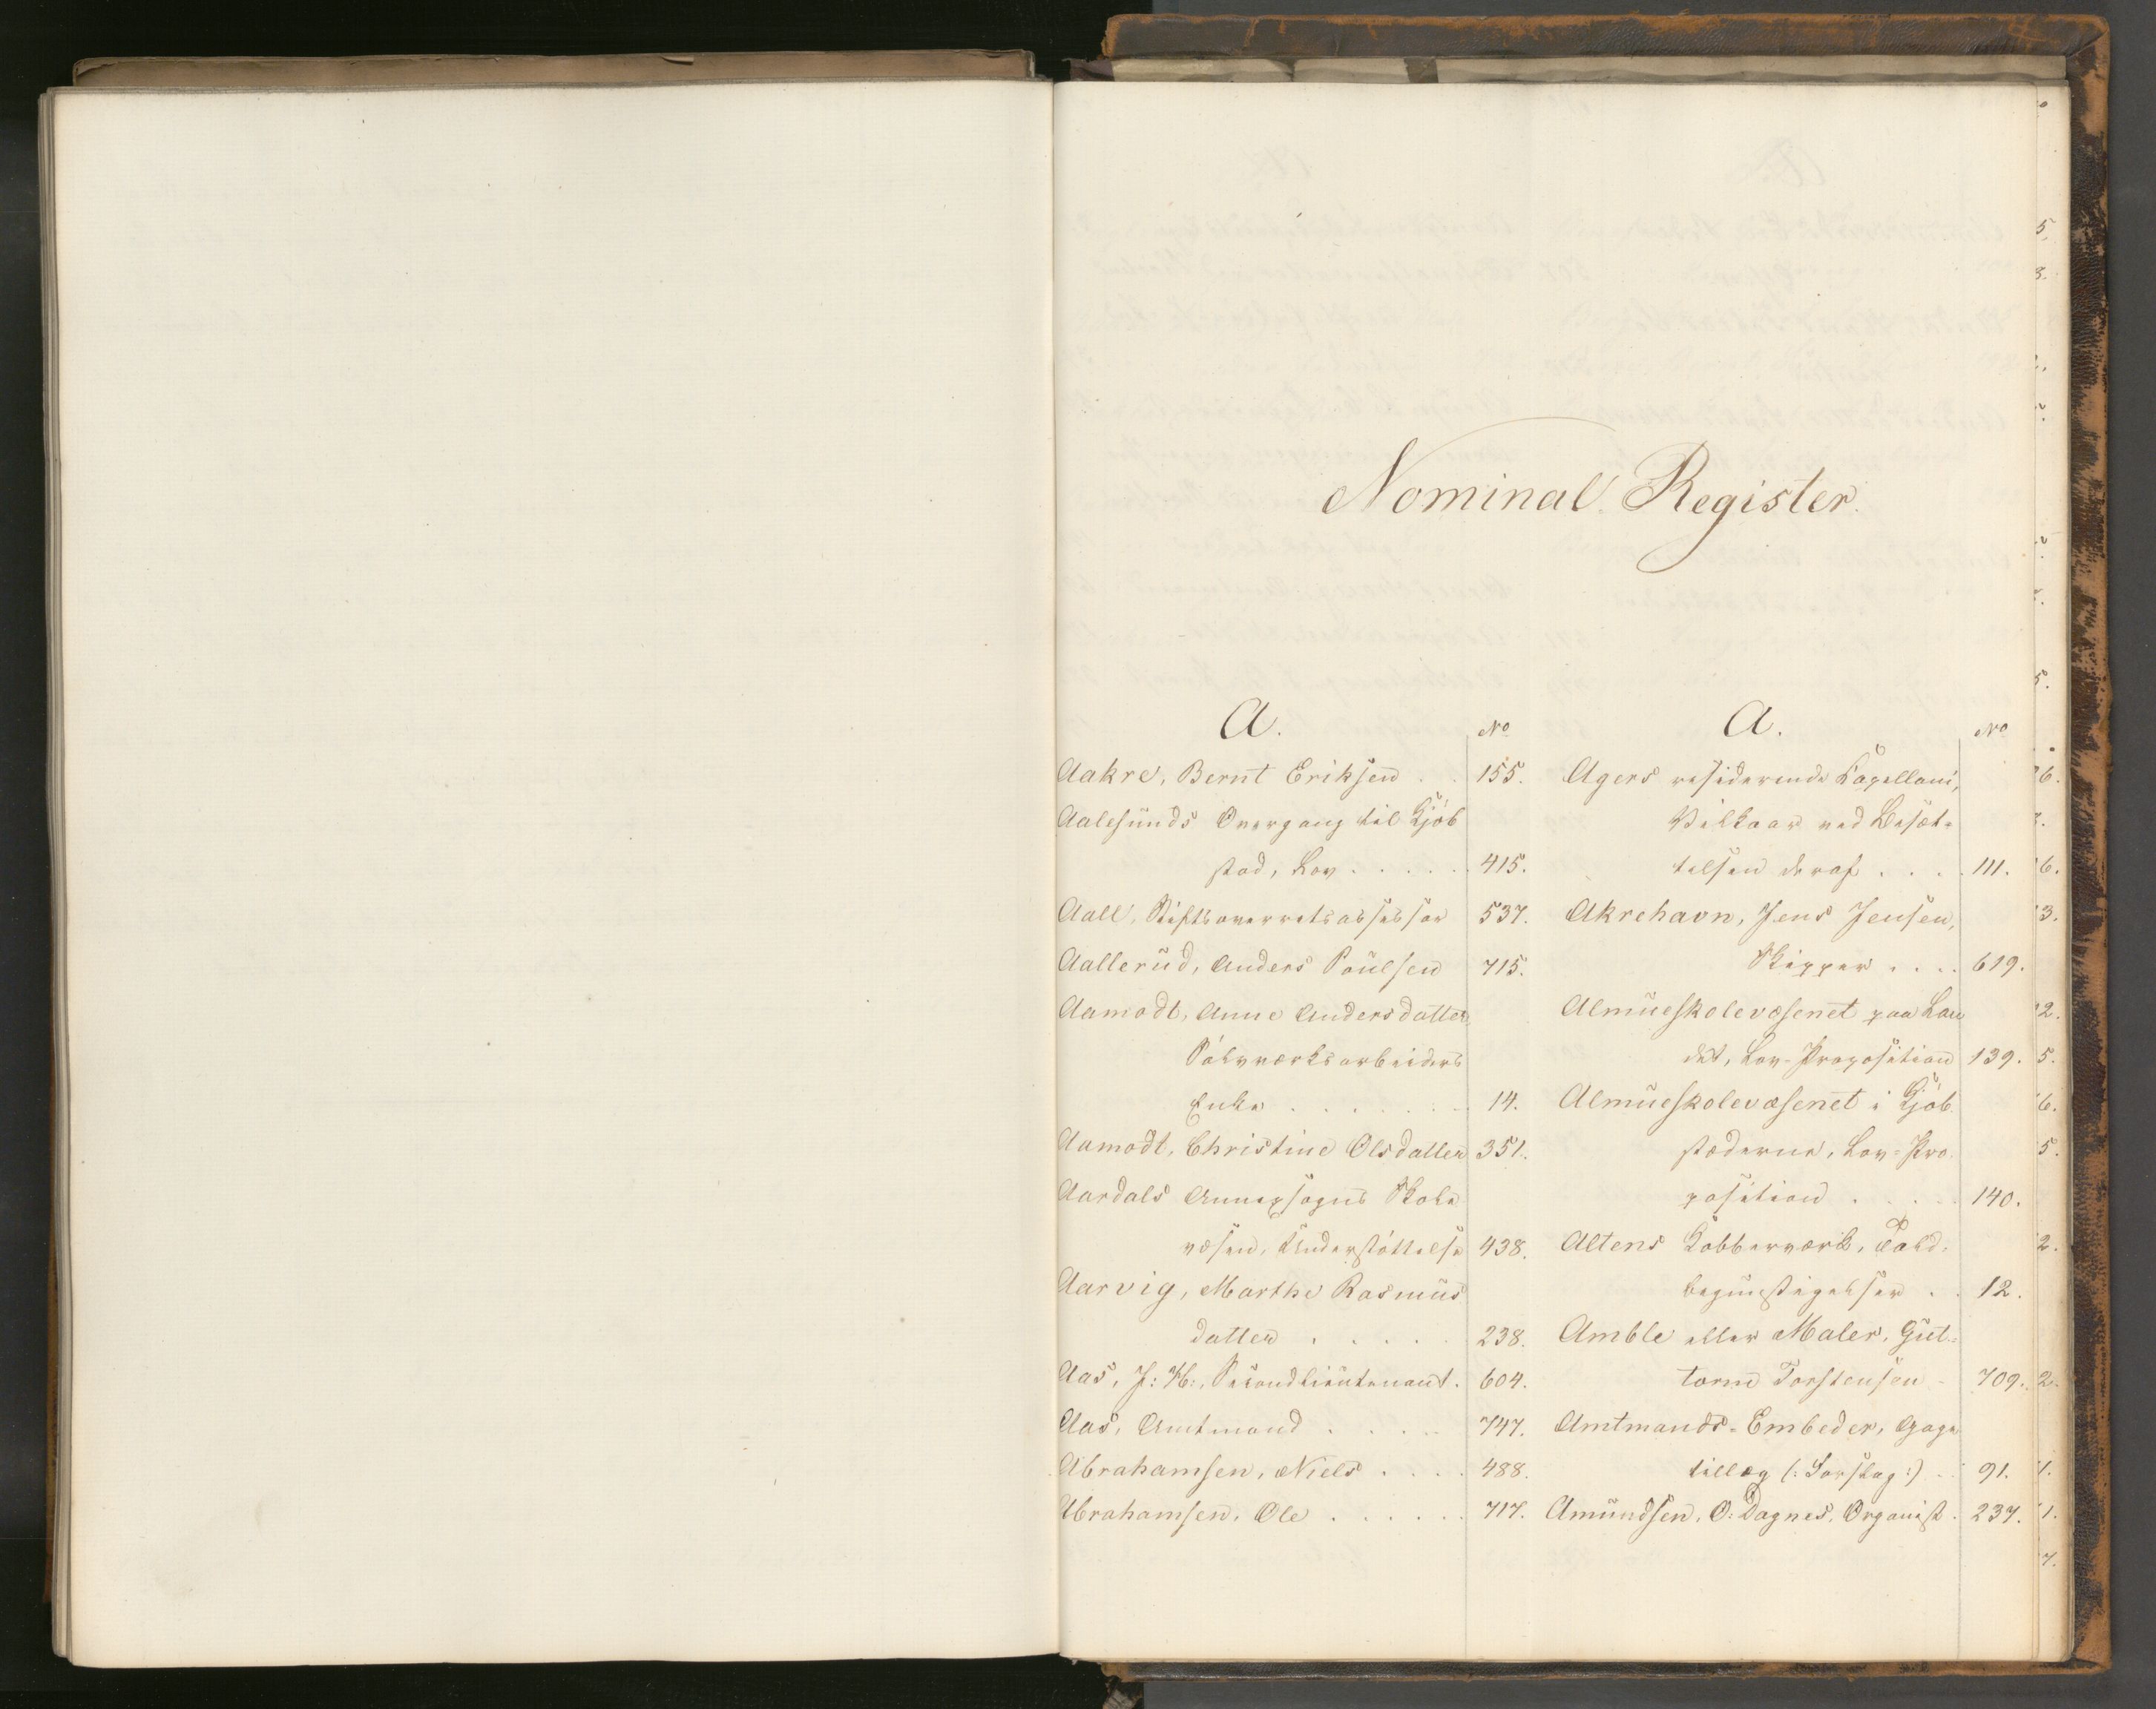 Nominal Register.
A.
No
Aakre, Bernt Eriksen . . 155.
Aalesunds Overgang til Kjöb
stad, Lov . . . . . 415.
Aall, Stiftsoverretsassessor 537.
Aallerud, Anders Poulsen 715.
Aamodt, Anne Andersdatter,
Sölvværksarbeiders
Enke . . . . . . . 14.
Aamodt, Christine Olsdatter 351.
Aardals Annexsogns Skole
væsen, Understöttelse 438.
Aarvig, Marthe Rasmus
datter . . . . . 238.
Aas, J: H:, Secondlieutenant. 604.
Aas, Amtmand . . . . . 747.
Abrahamsen, Niels . . . . 488.
Abrahamsen, Ole . . . . . . 717.
A.
No
Agers residerende Kapellani,
Vilkaar ved Besæt-
telsen deraf . . . . 111.
Akrehavn, Jens Jensen,
Skipper . . . . 619.
Almueskolevæsenet paa Lan
det, Lov-Proposition 139.
Almueskolevæsenet i Kjöb
stæderne, Lov-Pro
position . . . . . 140.
Altens Kobberværk, Told-
begunstigelser . . 12.
Amble eller Maler, Gut-
torm Torstensen 709.
Amtmands-Embeder, Gage
tillæg (: Forslag :) . . 91.
Amundsen, O: Dagnes, Organist . 237.